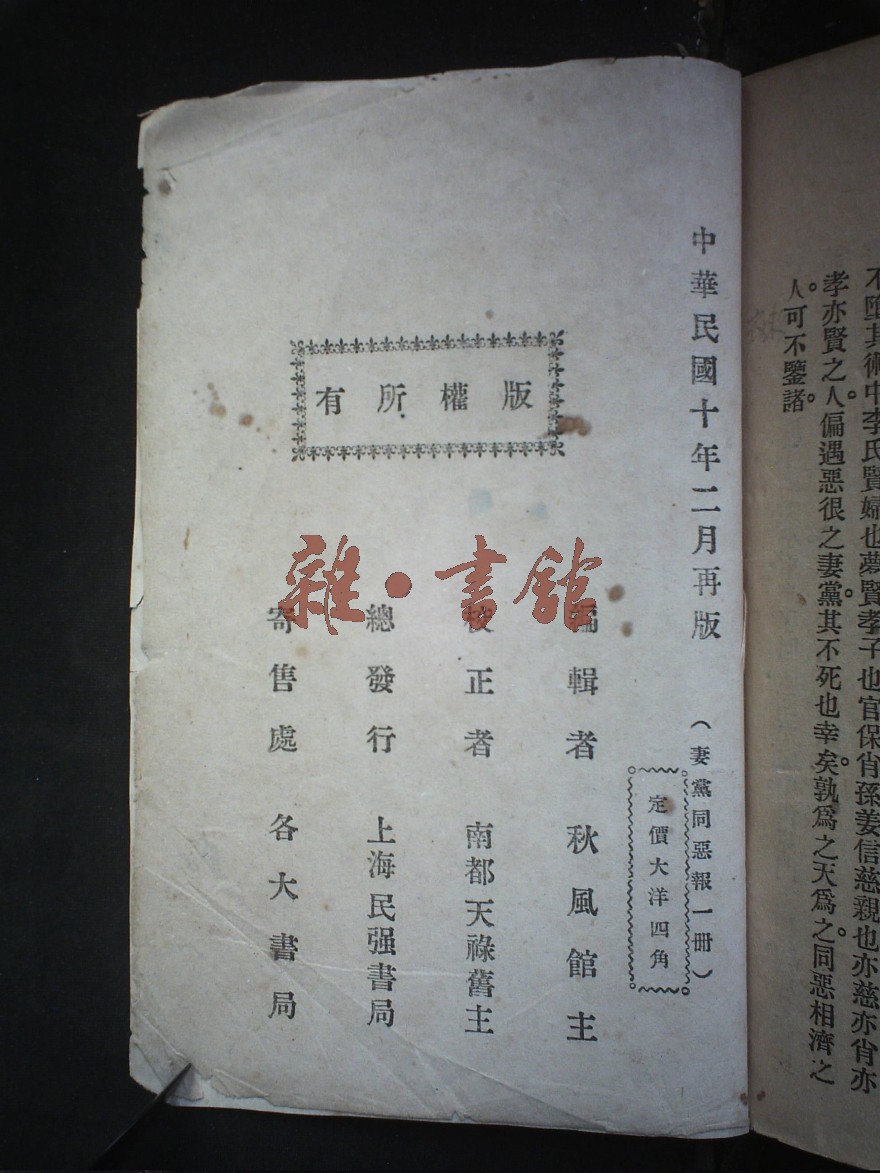 不墮其術中李氏賢婦也夢賢孝子也官保肖孫姜信慈親也亦慈亦肖亦
孝亦賢之人。偏遇惡很之妻黨。其不死也幸矣。孰爲之天爲之。同惡相濟之
人。可不鑒諸。
中華民國十年二月再版
(妻黨同惡報一冊)
定價大洋四角
版權所有
編輯者 秋風館主
校正者 南都天祿舊主
總發行 上海民强書局
寄售處 各大書局
雜·書館